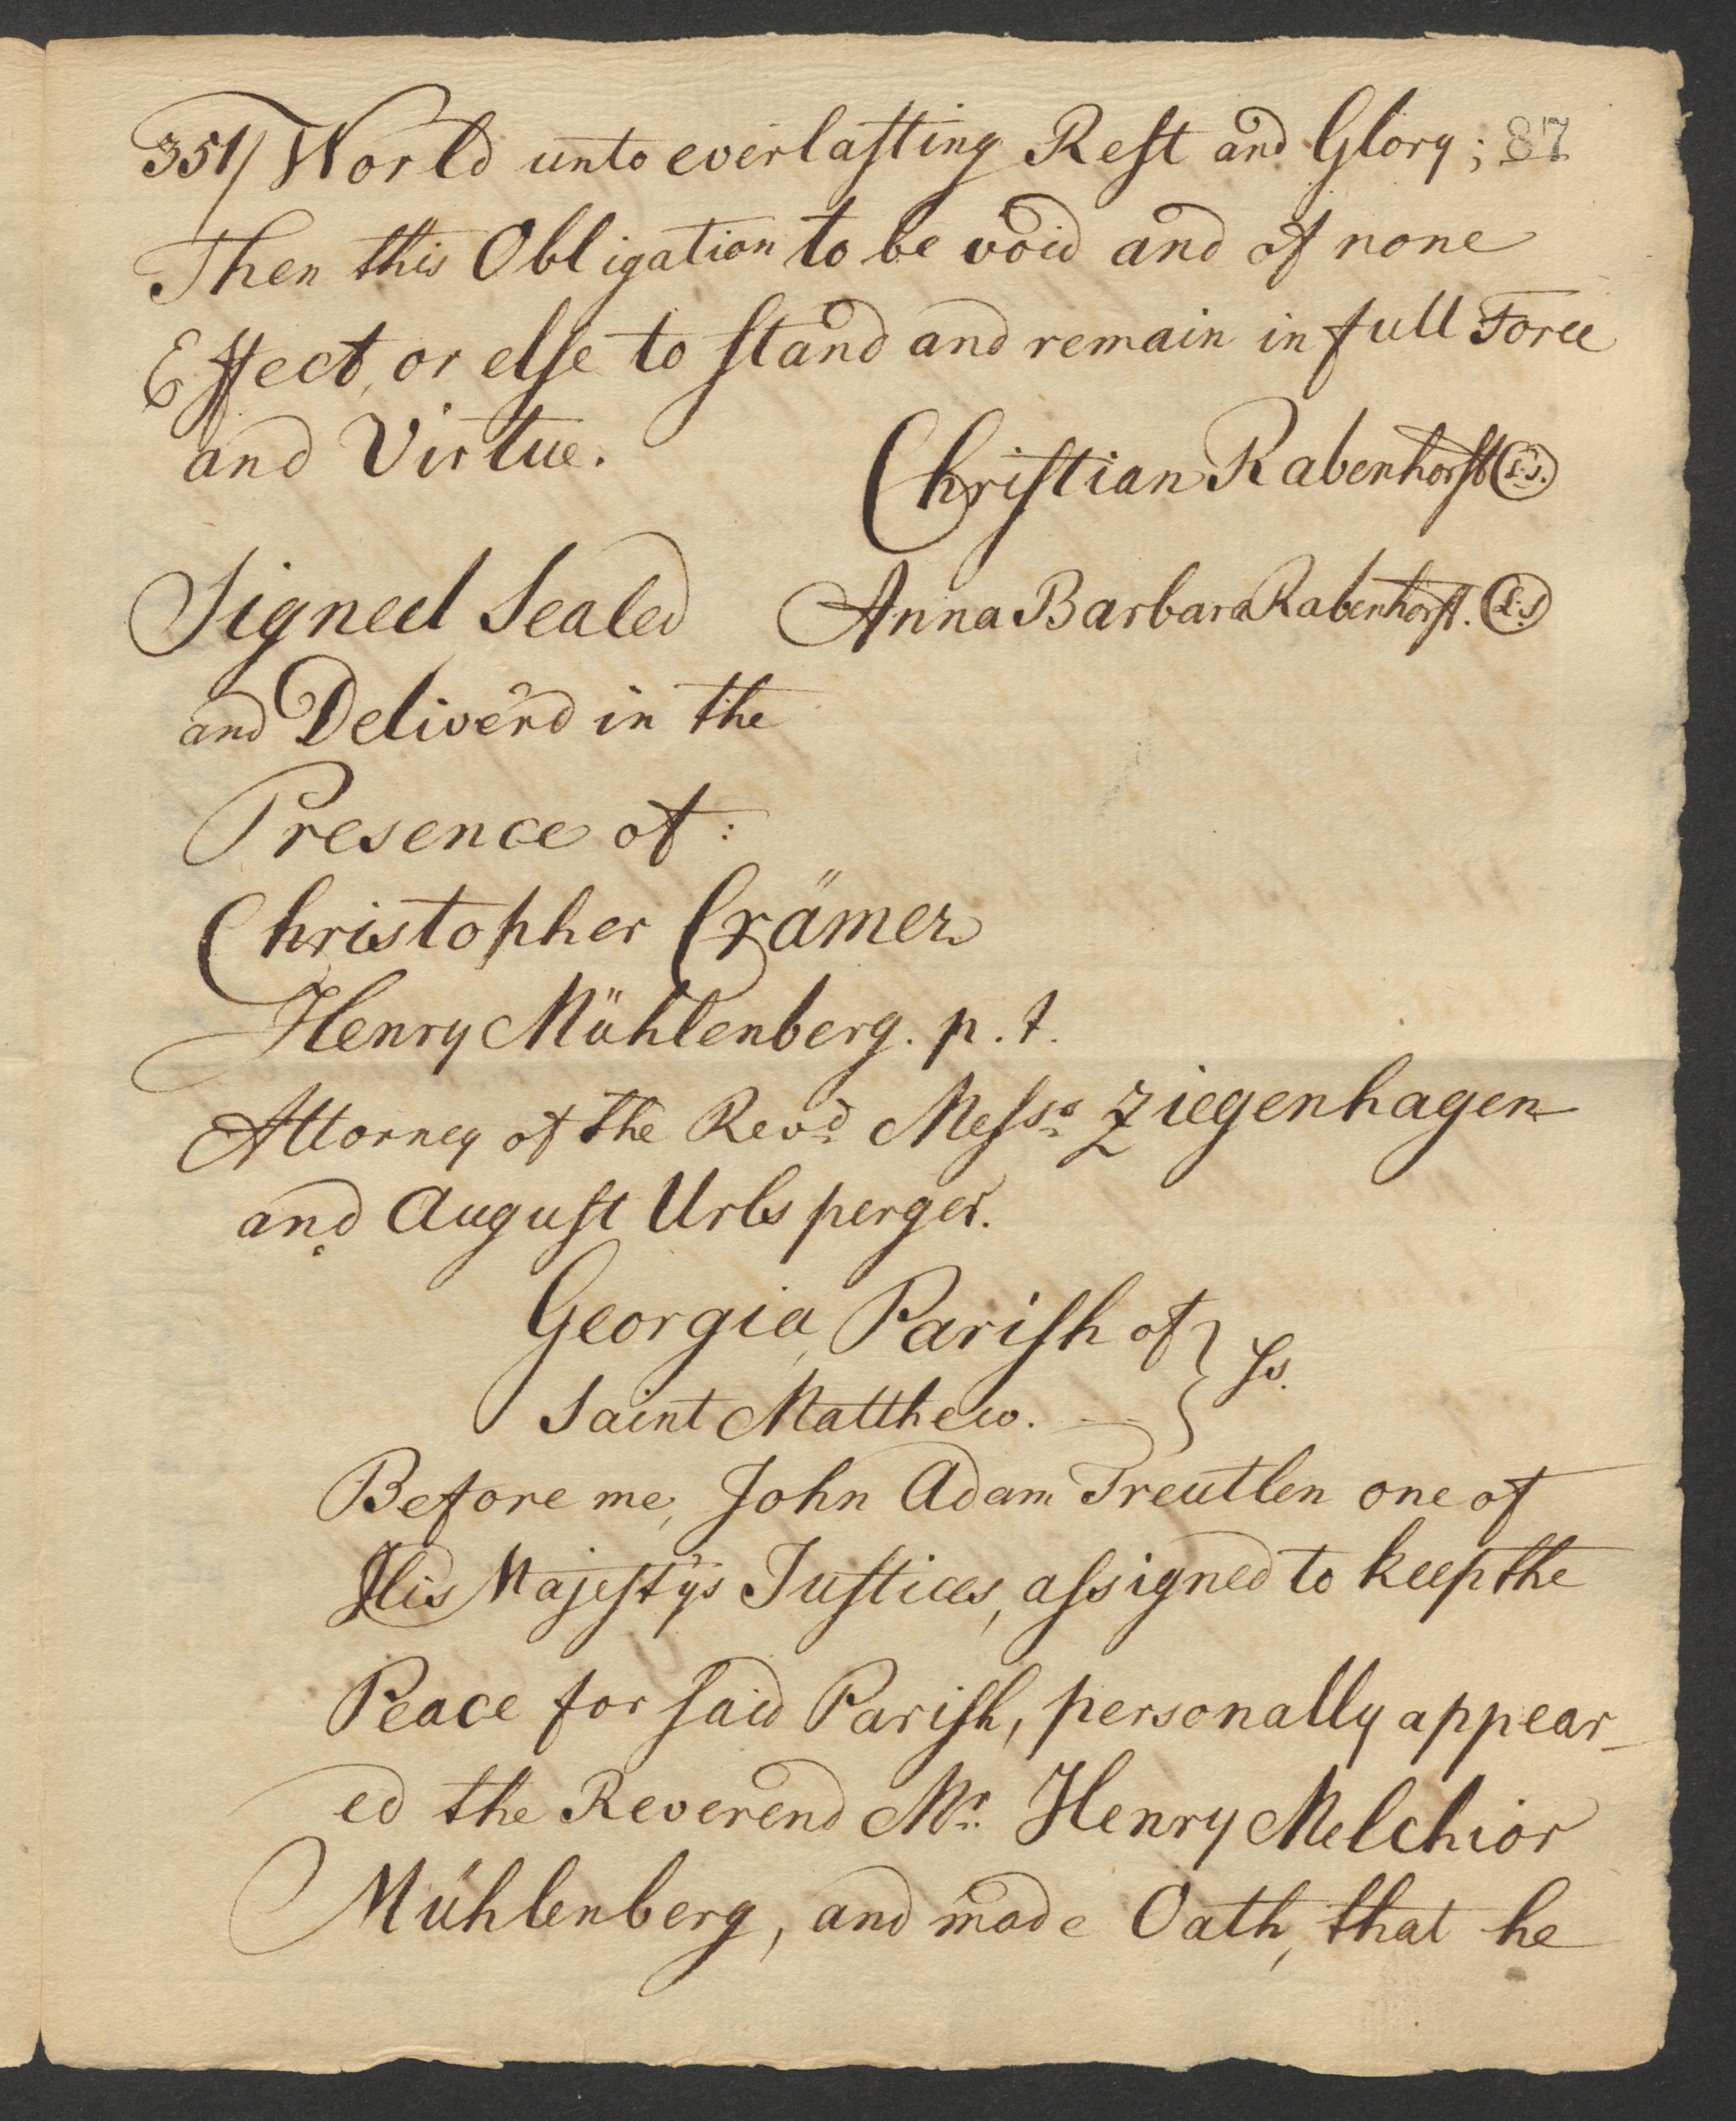 351/ World unto everlasting Rest and Glory; 87
Then this Obligation to be void and of none
Effect, or else to stand and remain in full Force
and Virtue.
Christian Rabenhorst L.S.
Signed Sealed
Anna Barbara Rabenhorst. L.S
and Deliver'd in the
Presence of:
Christopher Crämer
Henry Mühlenberg. p. t.
Attorney of the Revd. Messrs. Ziegenhagen
and August Urlsperger.
Georgia, Parish of } ss.
Saint Matthew. —
Before me, John Adam Treutlen one of
His Majesty's Justices, assigned to keep the
Peace for said Parish, personally appear-
ed the Reverend Mr. Henry Melchior
Mühlenberg, and made Oath, that he